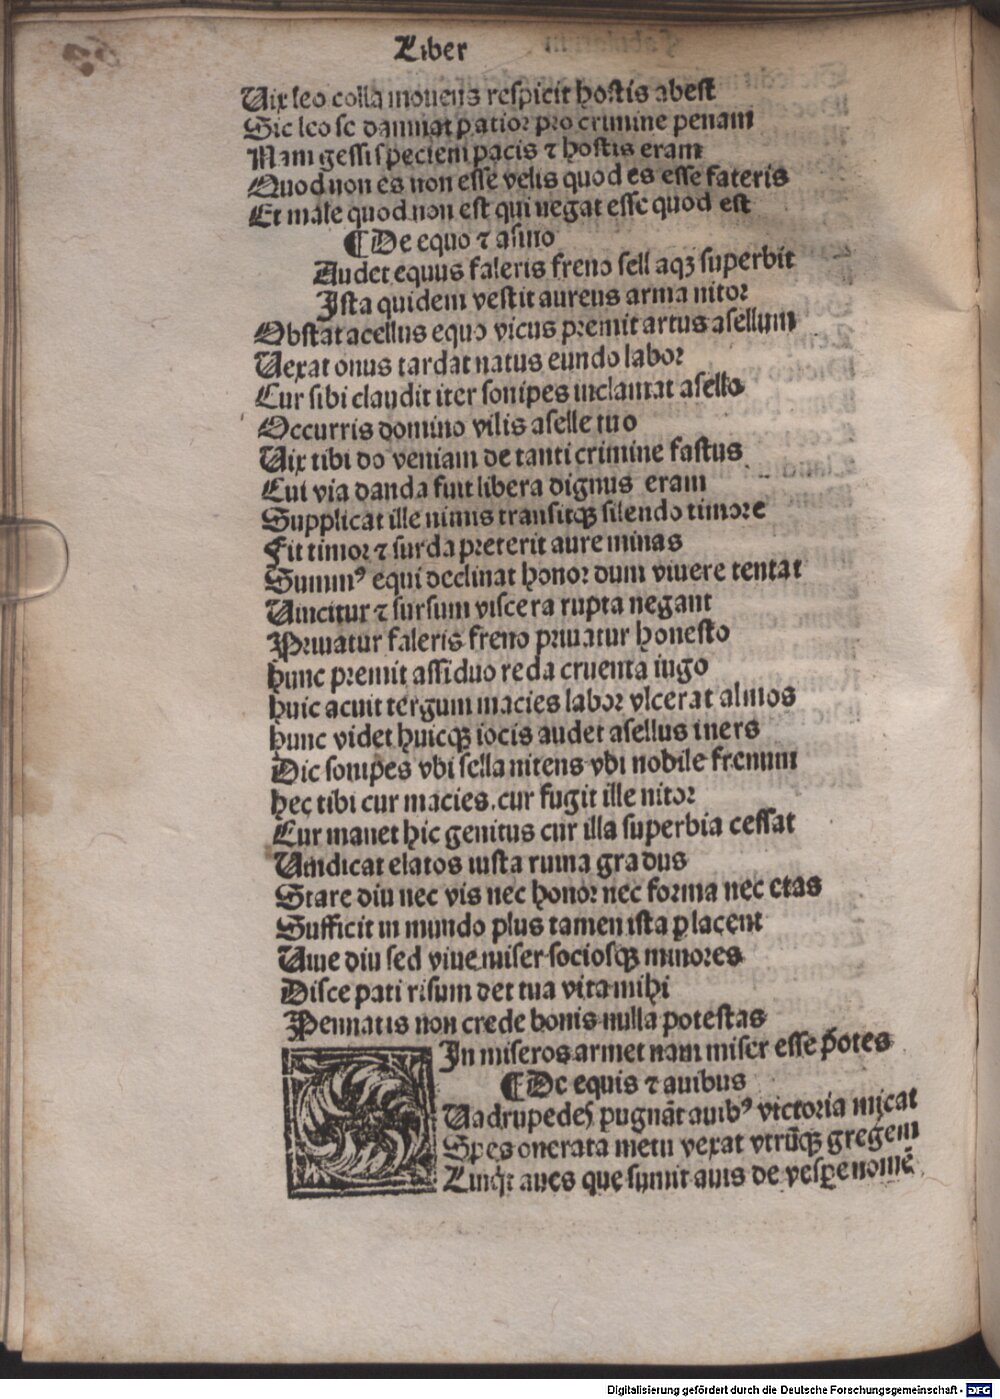 Liber
Uix leo colla mouens respicit hostis abest
Sic leo se damnat patior pro crimine penam
Nam gessi speciem pacis ⁊ hostis eram
Quod non es non esse velis quod es esse fateris
Et male quod non est qui negat esse quod est
¶ De equo ⁊ asino
Audet equus faleris freno sell aqꝫ superbit
Ista quidem vestit aureus arma nitor
Obstat acellus equo vicus premit artus asellum
Uexat onus tardat natus eundo labor
Cur sibi claudit iter sonipes inclamat asello
Occurris domino vilis aselle tuo
Uix tibi do veniam de tanti crimine fastus
Cui via danda fuit libera dignus eram
Supplicat ille nimis transitqꝫ silendo timore
Fit timor ⁊ surda preterit aure minas
Summꝰ equi declinat honor dum viuere tentat
Uincitur ⁊ sursum viscera rupta negant
Priuatur faleris freno priuatur honesto
hunc premit assiduo reda cruenta iugo
huic acuit tergum macies labor vlcerat almos
hunc videt huicqꝫ iocis audet asellus iners
Dic sonipes vbi sella nitens vbi nobile frenum
hec tibi cur macies. cur fugit ille nitor
Cur manet hic genitus cur illa superbia cessat
Uindicat elatos iusta ruina gradus
Stare diu nec vis nec honor nec forma nec etas
Sufficit in mundo plus tamen ista ꝑlacent
Uiue diu sed viue miser sociosqꝫ minores
Disce pati risum det tua vita mihi
Pennatis non crede bonis nulla potestas
In miseros armet nam miser esse p̄otes
¶ De equis ⁊ auibus
Uadrupedes pugnāt auibꝰ victoria micat
Spes onerata metu vexat vtrūqꝫ gregem
Linq̄t aues que sumit auis de vesꝑe nomē
Digitalisierung gefördert durch die Deutsche Forschungsgemeinschaft - DFG